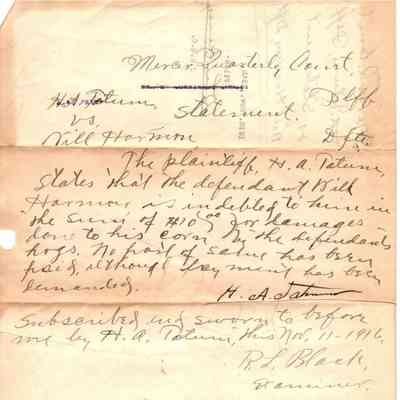 Mercer Quarterly Court
H. A. Tatum, Plff
vs. Statement.
Will Harmon Dft.
The plaintiff, H. A. Tatum,
states that the defendant Will
Harmon is indebted to him in
the sum of $10.00 for damages
done to his corn by the defendants
hogs. No part of same has been
paid, although payment has been
demanded.
H. A. Tatum
Subscribed and sworn to before
me by H. A. Tatum, this Nov. 11-1916.
R. L. Black,
Examiner.